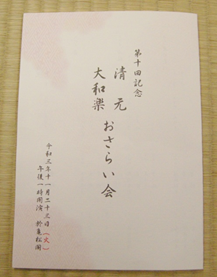 第十回記念
清元
大和楽
おさらい会
令和三年十一月二十三日(火)
午後一時開演 於亀松閣